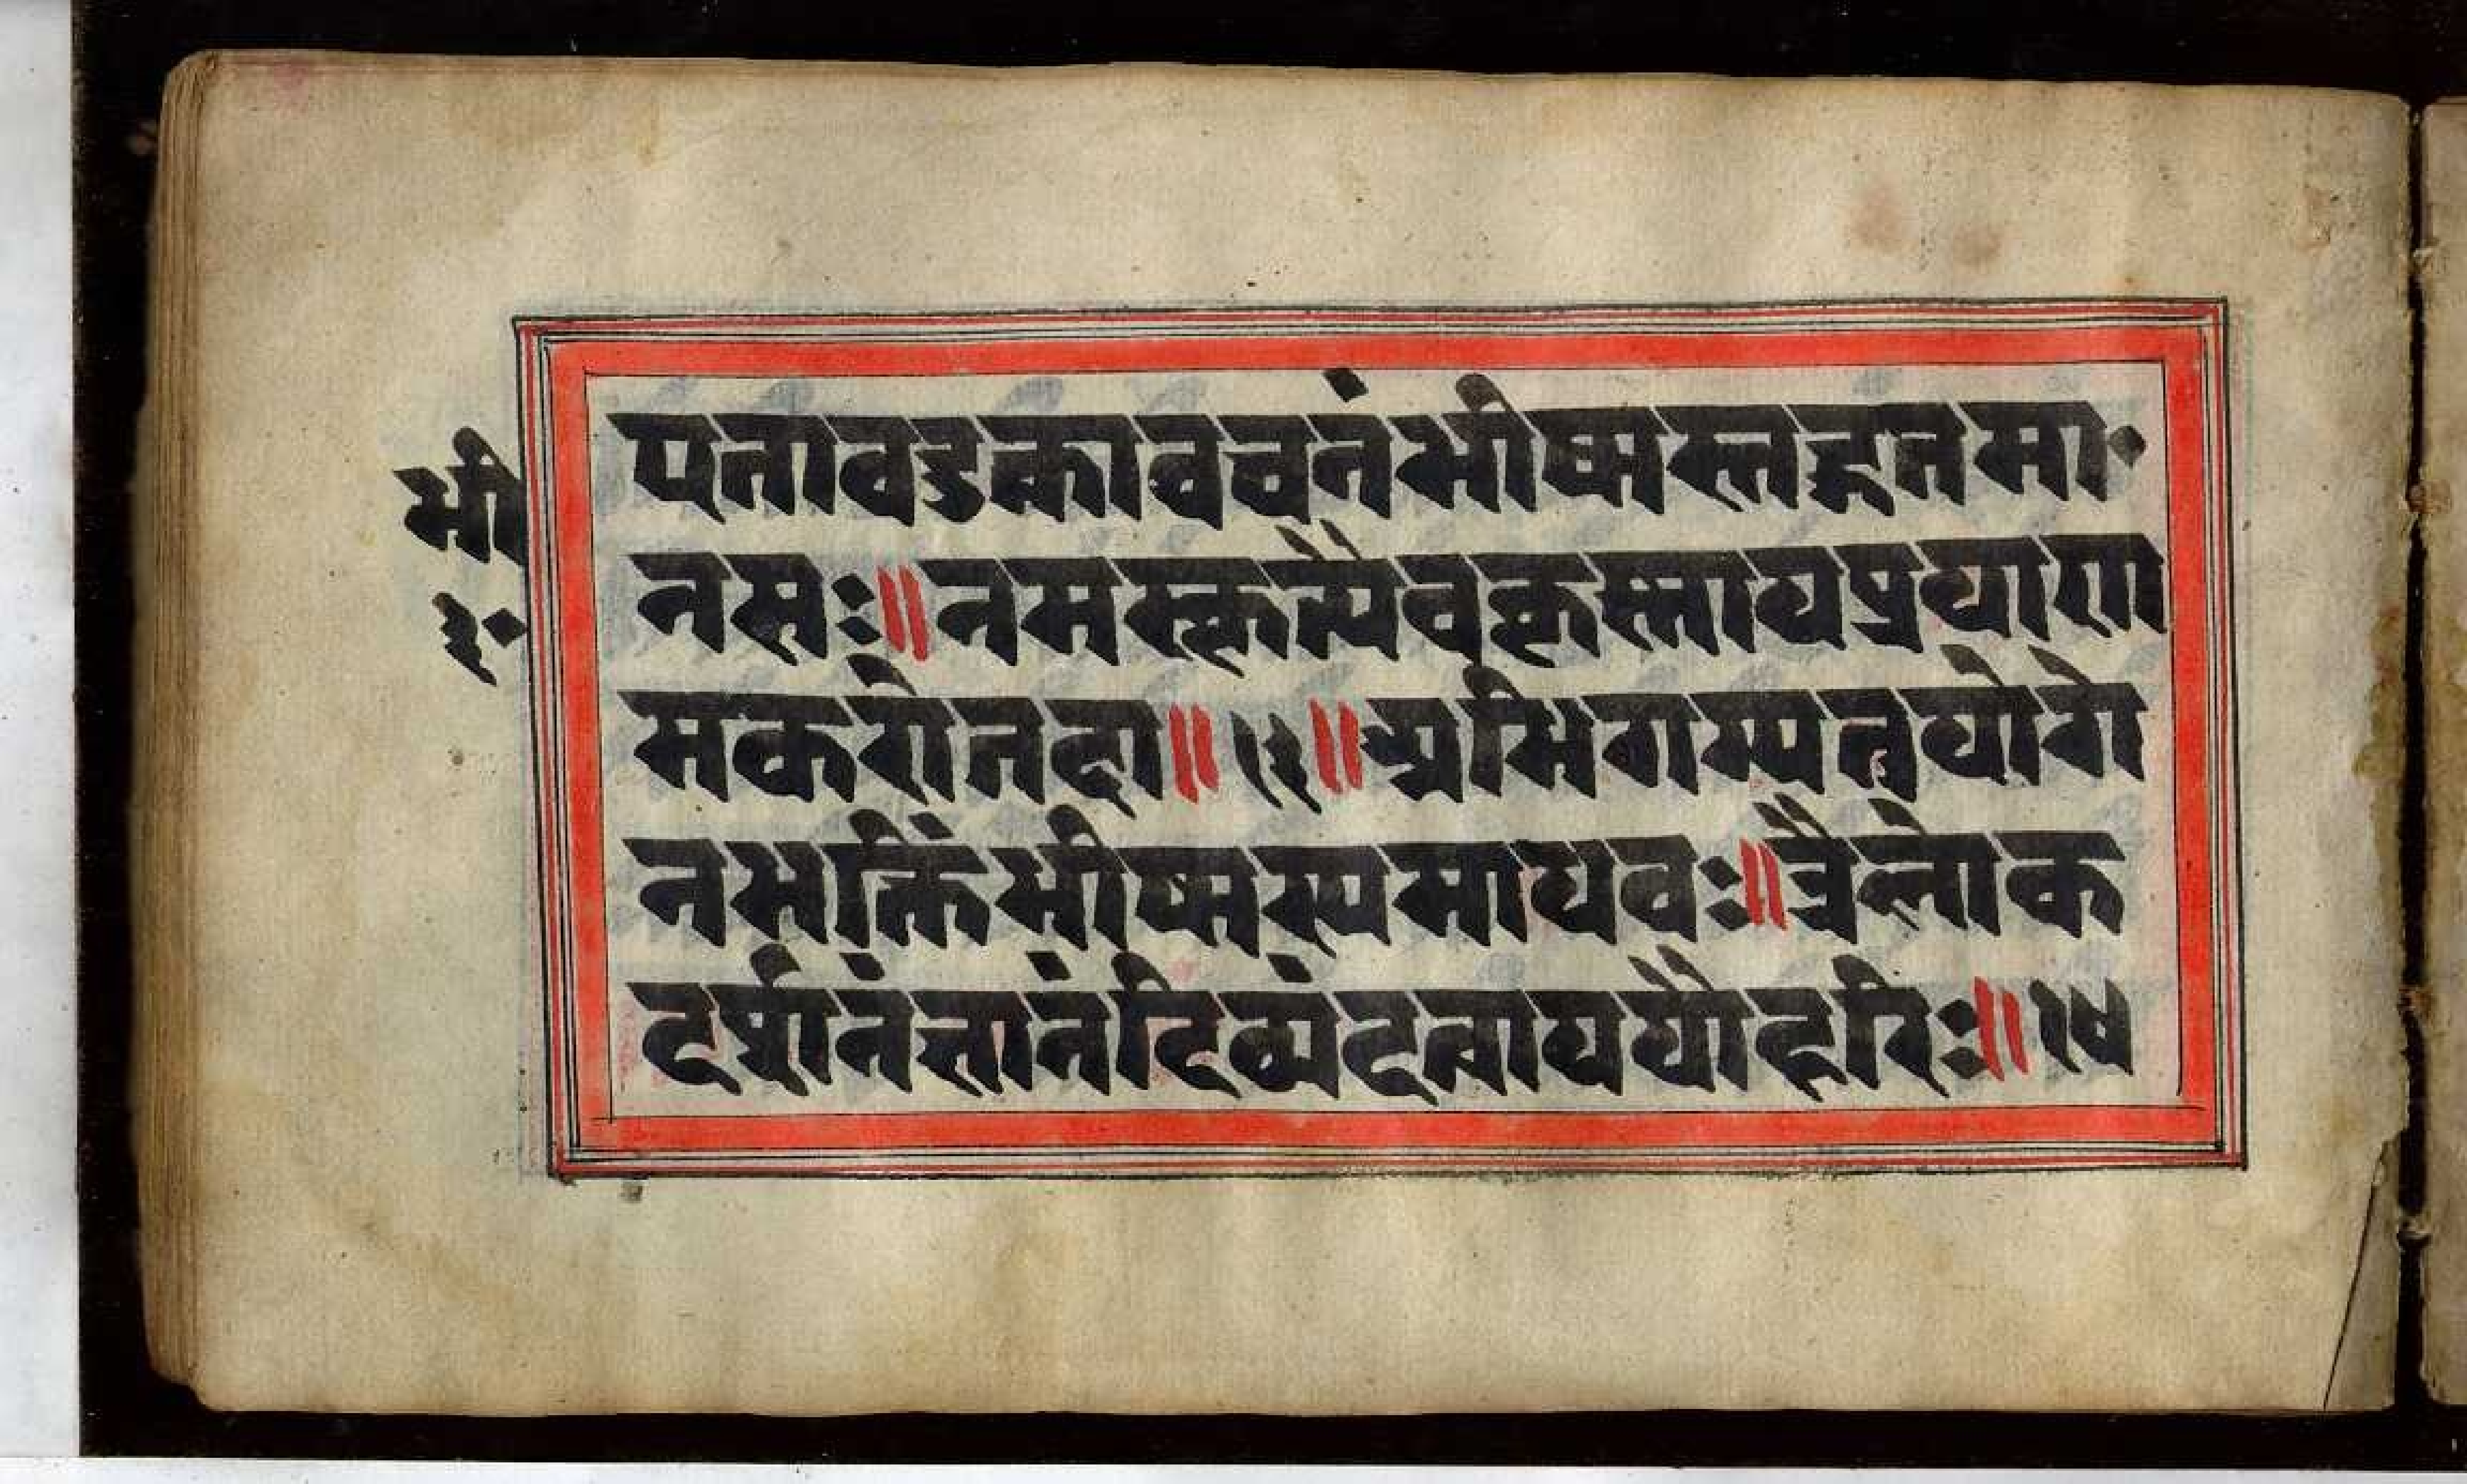 भी
१०
पतावडकावचनंभीष्मस्तद्गतमा
नसः॥नमस्कृत्यैवकृस्नायप्रयाणा
मकरोतदा॥१३॥अभिगम्यतुयोगे
नभक्तिंभीष्मस्यमाधवः॥त्रैलोक
दर्शानंत्तानंदिव्यंदत्वाययौहरिः॥१४